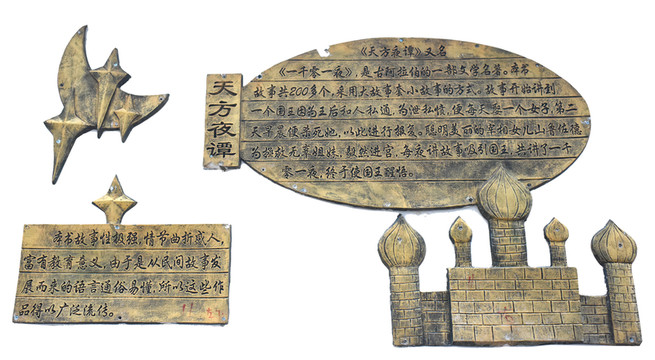 天方夜谭
《天方夜谭》又名
《一千零一夜》，是古阿拉伯的一部文学名著。本书
故事共200多个，采用大故事套小故事的方式。故事开始讲到
一个国王因为王后和人私通，为泄私愤，便每天娶一个女子，第二
天早晨便杀死她，以此进行报复。聪明美丽的宰相女儿山鲁佐德
为拯救无辜姐妹，毅然进宫，每夜讲故事吸引国王，共讲了一千
零一夜，终于使国王醒悟。
本书故事性极强，情节曲折感人，
富有教育意义，由于是从民间故事发
展而来的语言通俗易懂，所以这些作
品得以广泛流传。